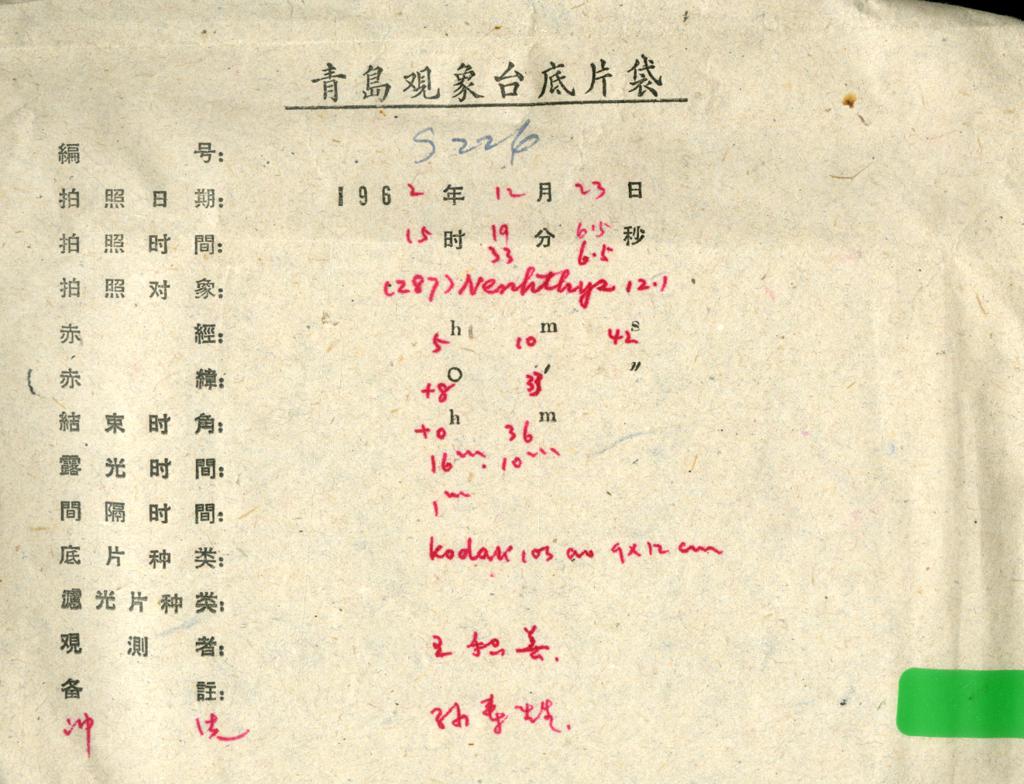 青島观象台底片袋
編 号: S226
拍照日期: 1962年12月23日
拍照时間: 15时19分6.5秒
33 6.5
拍照对象: (287) Nenhthys 12.1
赤 經: 5h 10m 42s
赤 緯: +8° 33′ ″
結束时角: +0h 36m
露光时間: 16m. 10m
間隔时間: 1m
底片种类: kodak 103 ao 9x12 cm
濾光片种类:
观 測 者: 王
备 註:
冲 洗 孙寿